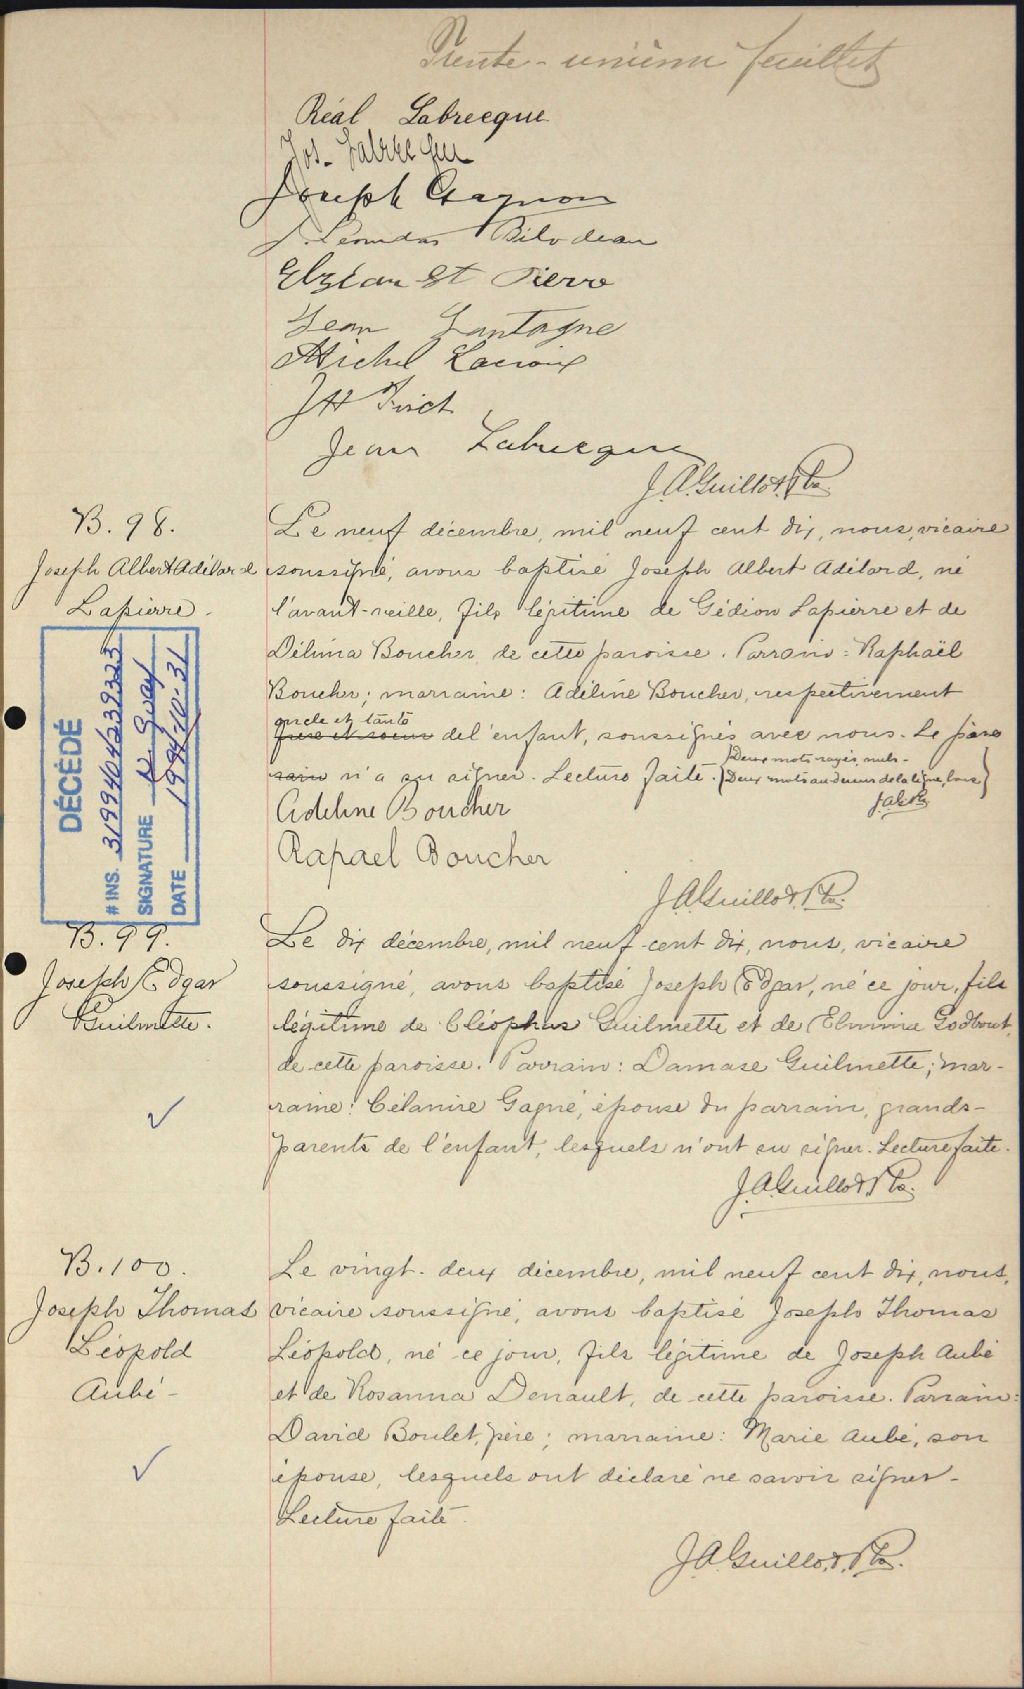 Trente-unième feuillet
Réal Labrecque
Jos. Labrecque
Joseph Gagnon
J. Léonidas Bilodeau
Elzéar St Pierre
Jean Gantagne
Michel Lacroix
J H
Jean Labrecque
J.A. Guillot, Ptre.
B. 98.
Joseph Albert Adélard
Lapierre.
Le neuf décembre, mil neuf cent dix, nous, vicaire
soussigné, avons baptisé Joseph Albert Adélard, né
l'avant-veille, fils légitime de Gédéon Lapierre et de
Délima Boucher, de cette paroisse. Parrain: Raphaël
Boucher; marraine: Adéline Boucher, respectivement
oncle et tante
frère et soeur del'enfant, soussignés avec nous. Le père
n'a su signer. Lecture faite. Deux mots rayés, nuls.
Deux mots au dessus de la ligne, bons
J.A.G. Ptre
Adeline Boucher
Rapael Boucher
J.A. Guillot, Ptre.
DÉCÉDÉ
# INS. 3199404239323
SIGNATURE N. Guay
DATE 1994-10-31
B. 99.
Joseph Edgar
Guilmette.
Le dix décembre, mil neuf cent dix, nous, vicaire
soussigné, avons baptisé Joseph Edgar, né ce jour, fils
légitime de Cléophas Guilmette et de Elmina Godbout,
de cette paroisse. Parrain: Damase Guilmette; mar-
raine: Célanire Gagné, épouse du parrain, grands-
parents de l'enfant, lesquels n'ont su signer. Lecture faite.
J.A. Guillot, Ptre.
B. 100.
Joseph Thomas
Léopold
Aubé-
Le vingt-deux décembre, mil neuf cent dix, nous,
vicaire soussigné, avons baptisé Joseph Thomas
Léopold, né ce jour, fils légitime de Joseph Aubé
et de Rosanna Denault, de cette paroisse. Parrain:
David Boulet, père; marraine: Marie Aubé, son
épouse, lesquels ont déclaré ne savoir signer-
Lecture faite.
J.A. Guillot, Ptre.